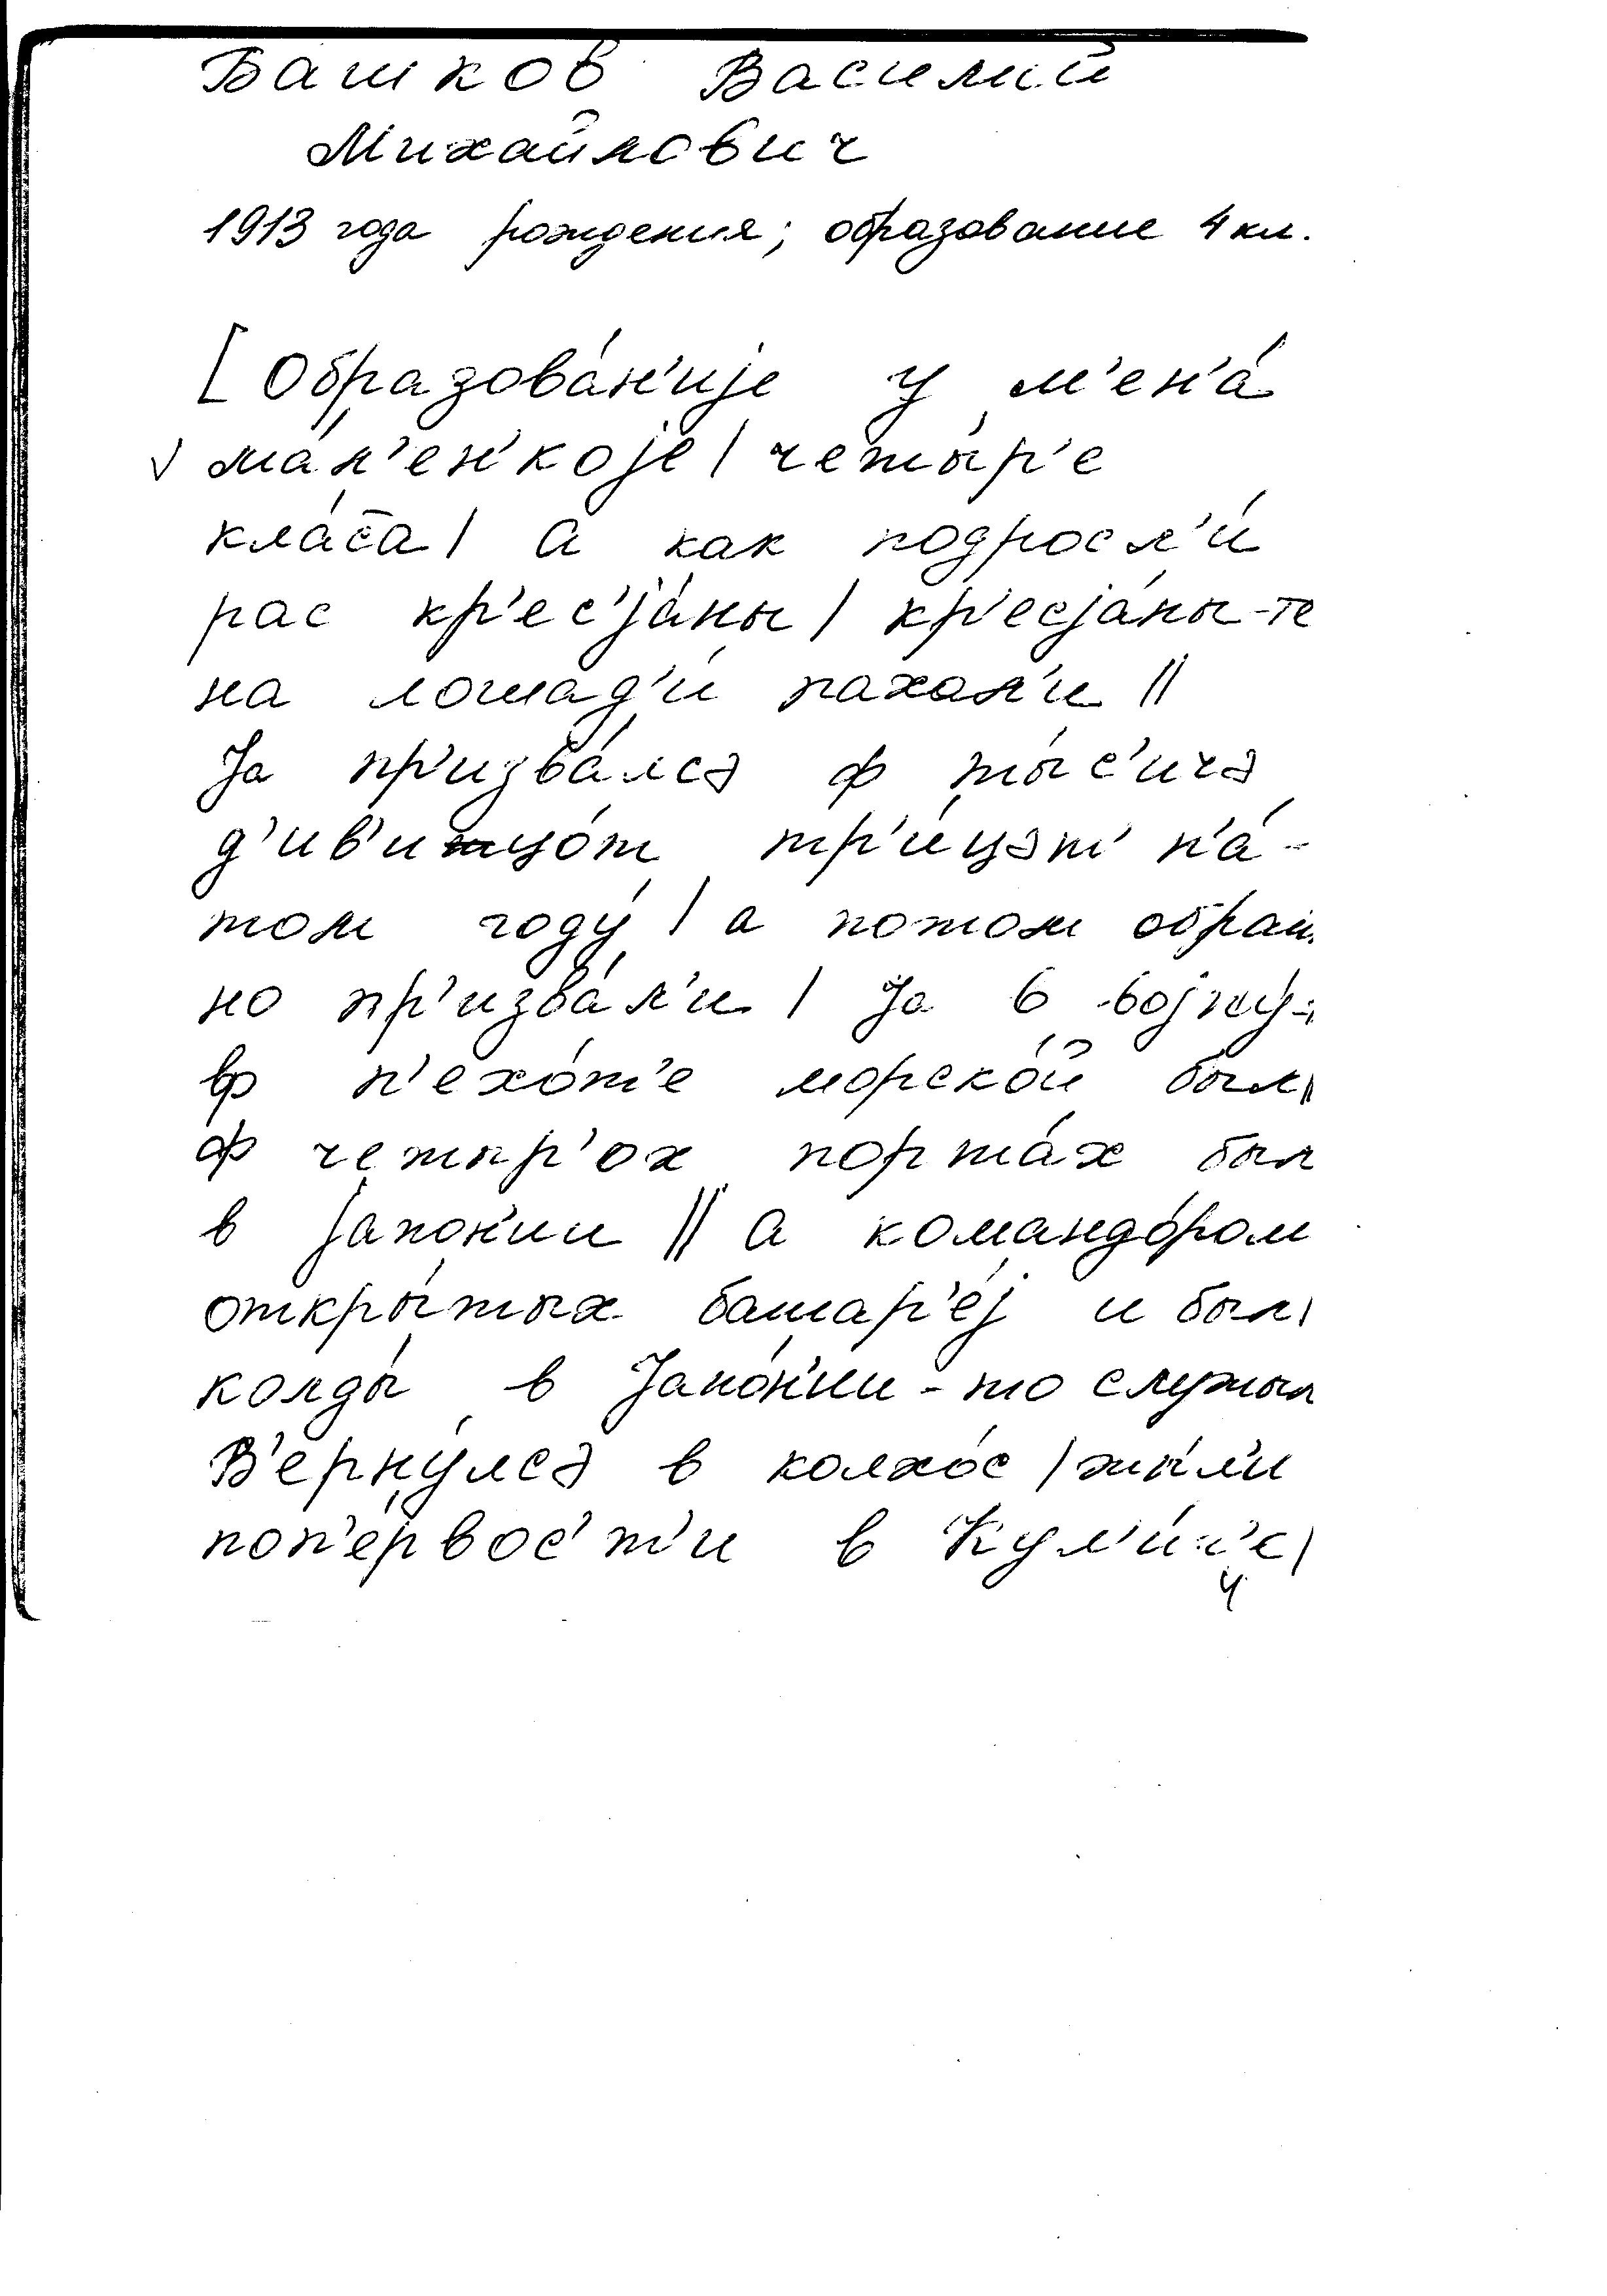 Башков Василий
Михайлович
1913 года рождения; образование 4 кл.
[Образова́н'иjе у м'ен'а́
√ ма́л'ен'коjе | четы́р'е
кла́с̄а | а как подросл'и́
рас кр'ес'jа́ны | кр'есjа́ны-те
на лошад'и́ пахал'и ||
Jа пр'изва́лсə ф ты́с'ичə
д'ив'ицо́т тр'и́цэт' п'а́-
том году́ | а потом обрат
но пр'изва́л'и | Jа в воjну
ф п'ехо́т'е морско́й был|
ф четыр'ох порта́х был
в jапон'ии || а командо́ром
откры́тых батар'е́j и был|
колды́ в Jапо́н'ии-то служыл
В'ерну́лсə в колхо́с | жы́л'и
поп'е́рвос'т'и в Кул'и́г'е|